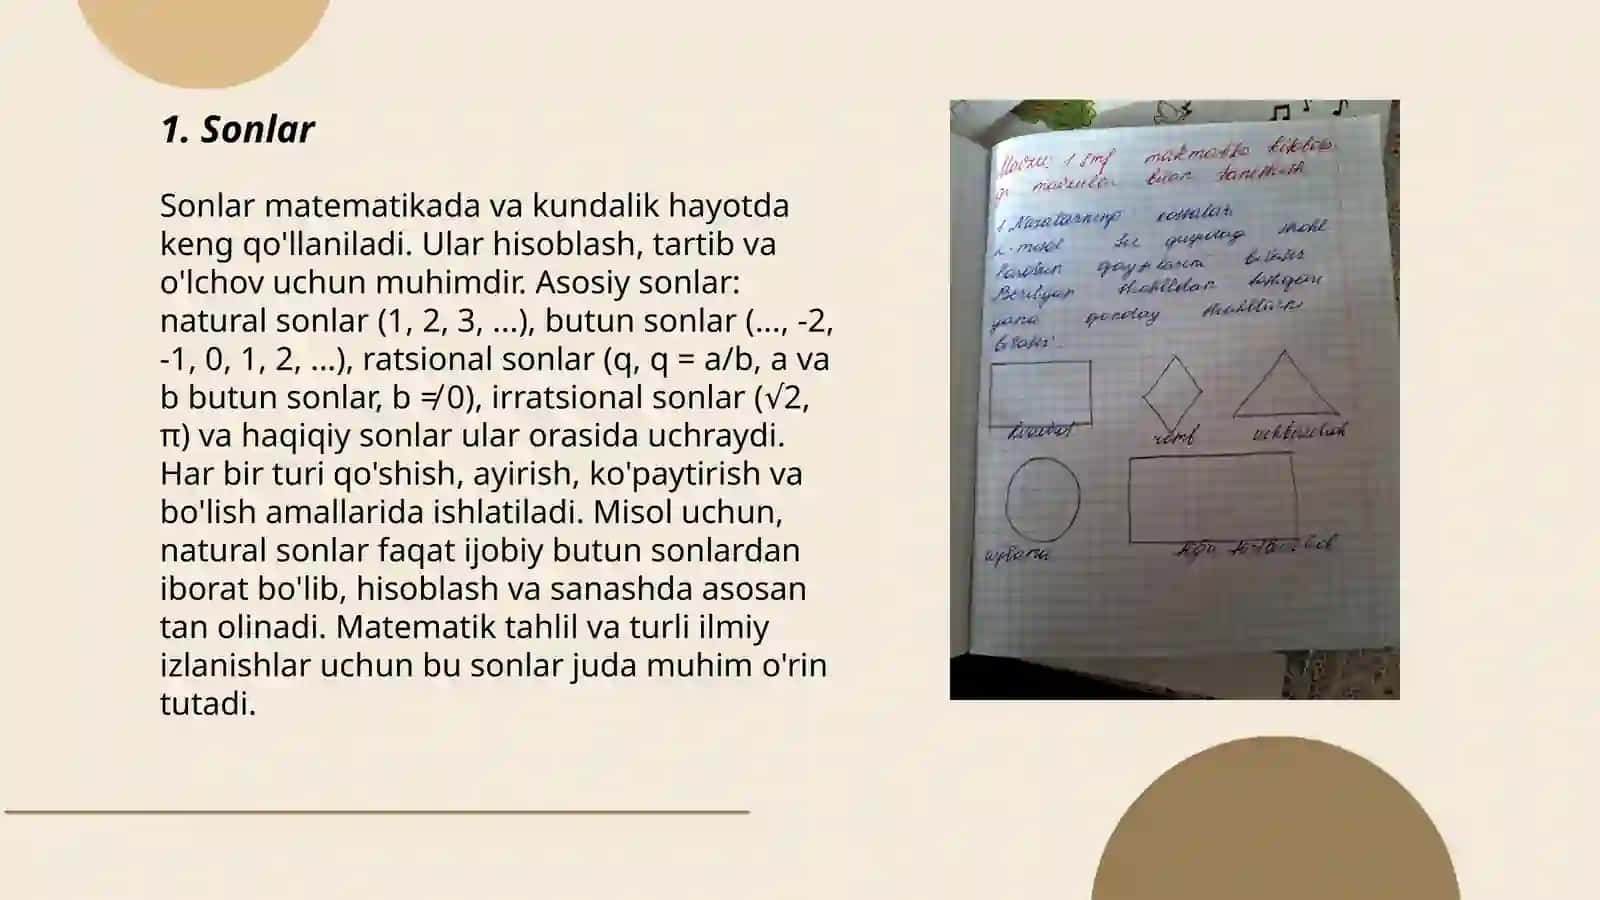 1. Sonlar
Sonlar matematikada va kundalik hayotda
keng qo'llaniladi. Ular hisoblash, tartib va
o'lchov uchun muhimdir. Asosiy sonlar:
natural sonlar (1, 2, 3, ...), butun sonlar (..., -2,
-1, 0, 1, 2, ...), ratsional sonlar (q, q = a/b, a va
b butun sonlar, b ≠ 0), irratsional sonlar (√2,
π) va haqiqiy sonlar ular orasida uchraydi.
Har bir turi qo'shish, ayirish, ko'paytirish va
bo'lish amallarida ishlatiladi. Misol uchun,
natural sonlar faqat ijobiy butun sonlardan
iborat bo'lib, hisoblash va sanashda asosan
tan olinadi. Matematik tahlil va turli ilmiy
izlanishlar uchun bu sonlar juda muhim o'rin
tutadi.
Mavzu: 1 sinf
bilan tanishish
2-misol
yana qanday
kvadrat romb uchburchak